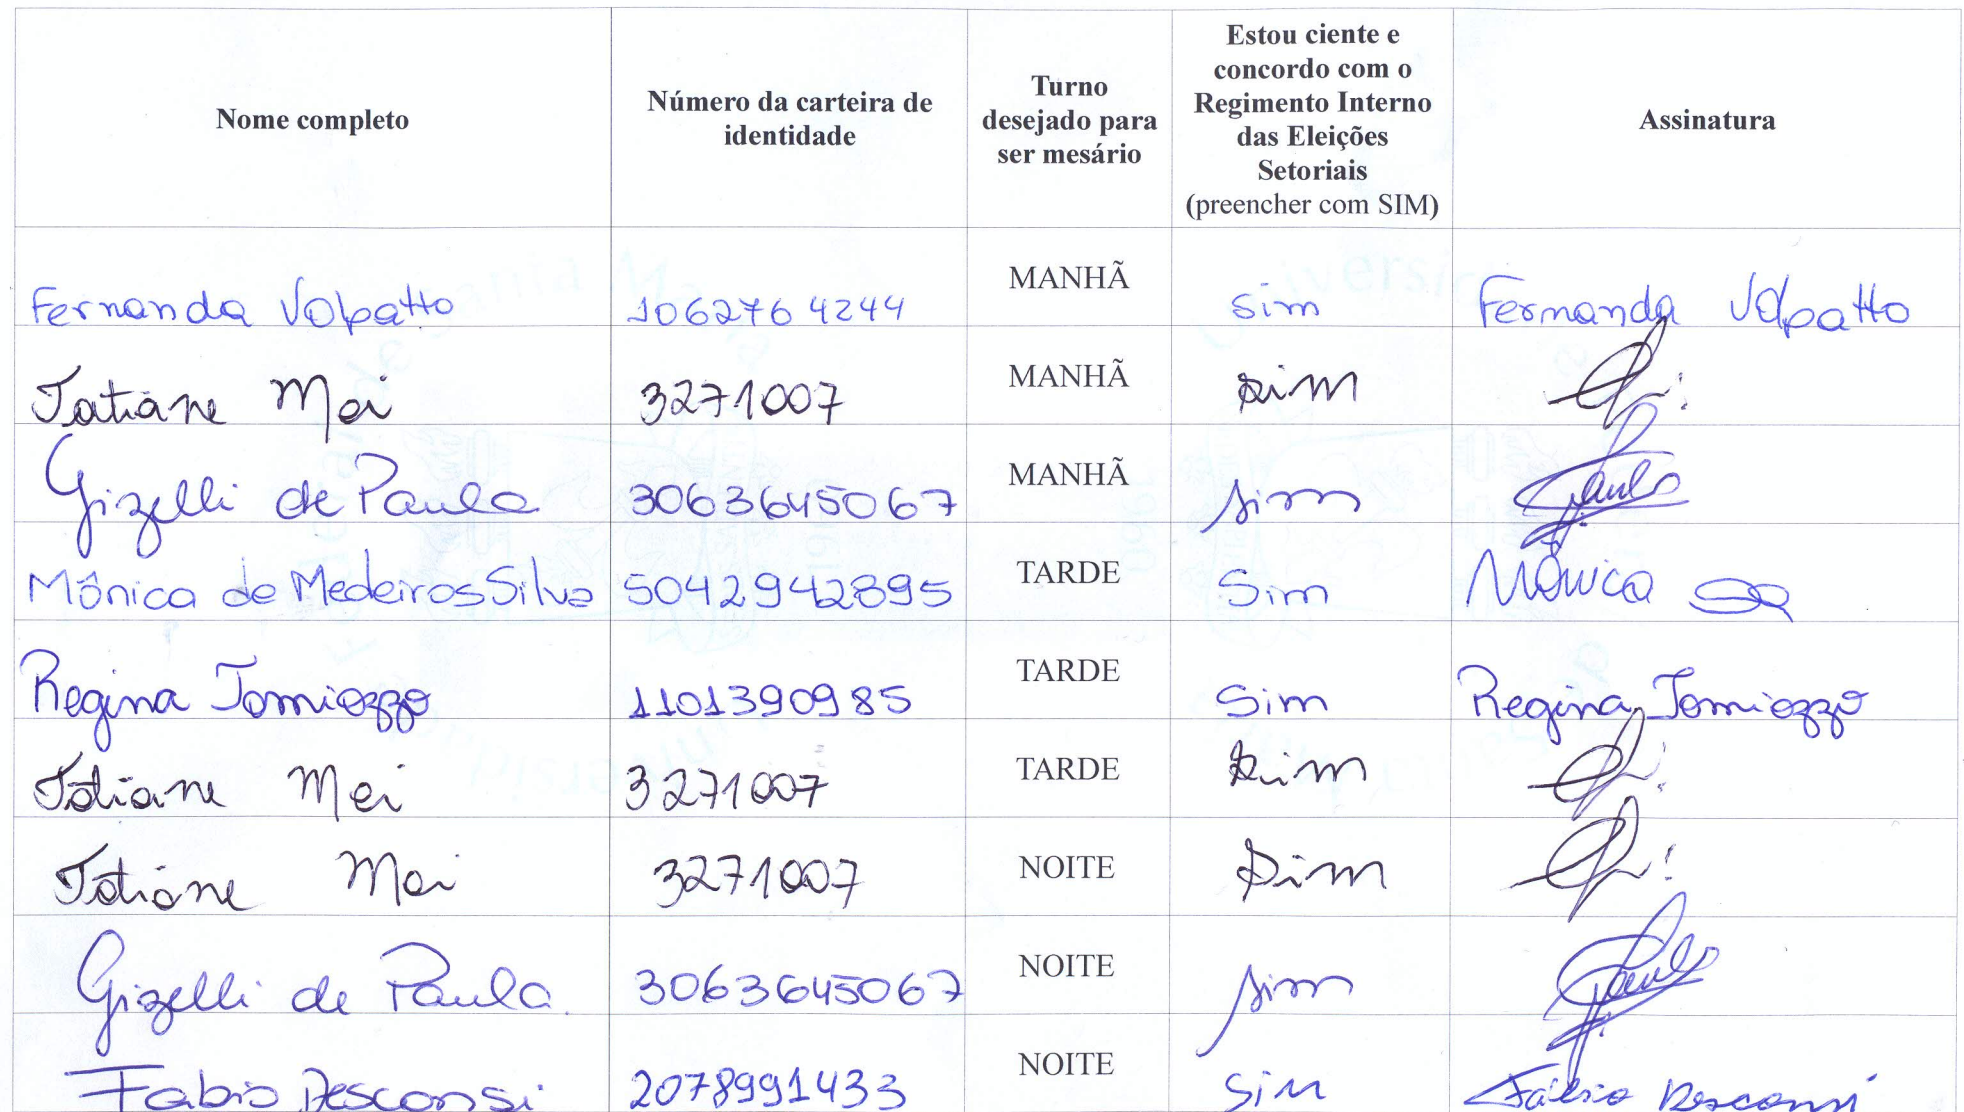 Nome completo
Número da carteira de identidade
Turno desejado para ser mesário
Estou ciente e concordo com o Regimento Interno das Eleições Setoriais (preencher com SIM)
Assinatura
Fernanda Volpatto 1062764244 MANHÃ Sim Fernanda Volpatto
Tatiane Mei 3271007 MANHÃ Sim
Gizelli de Paula 3063645067 MANHÃ Sim Paula
Mônica de Medeiros Silva 5042942895 TARDE Sim Mônica
Regina Tomiozzo 1101390985 TARDE Sim Regina Tomiozzo
Tatiane Mei 3271007 TARDE Sim
Tatiane Mei 3271007 NOITE Sim
Gizelli de Paula. 3063645067 NOITE Sim Paula
Fabio Desconsi 2078991433 NOITE Sim Fábio Desconsi